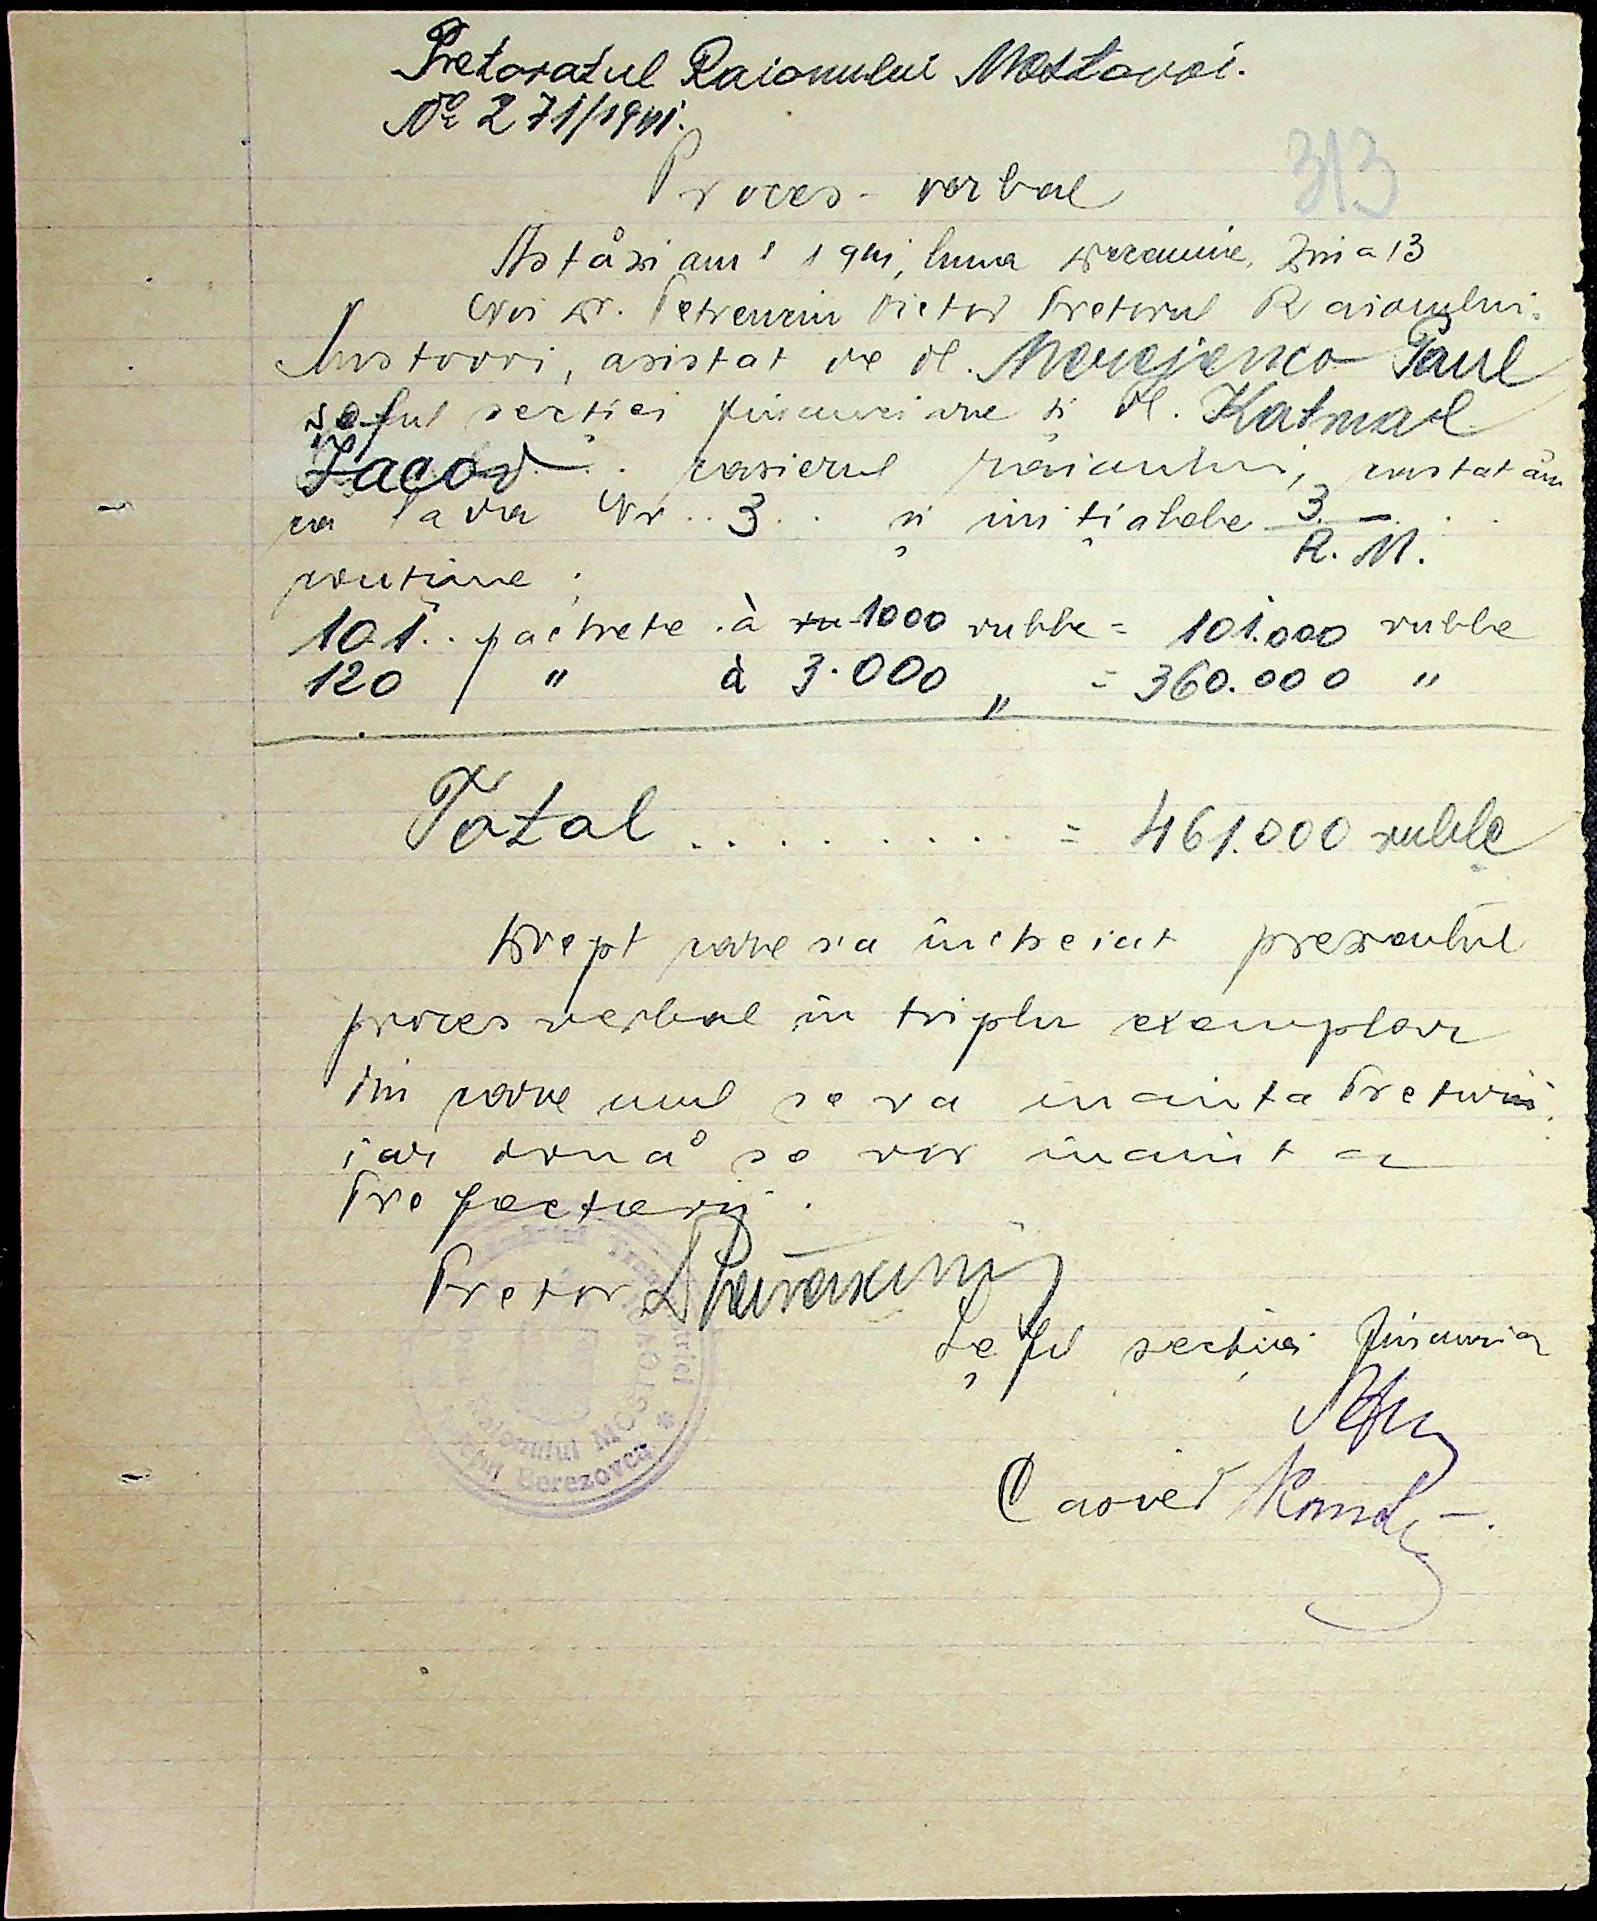 Pretoratul Raionului Mostovoi.
No 271/1941.
313
Proces-verbal
Astăzi anul 1941, luna Decemvrie, ziua 13
Noi Dr. Petrenciu Victor Pretorul Raionului
Mostovoi, asistat de dl. Merejenco Paul
șeful secției financiare și dl. Katmal
Iacov.. casierul raionului, constatăm
ca lada Nr..3.. și inițialele 3.
R. M.
conține:
101.. pachete à 1000 ruble = 101.000 ruble
120 " à 3.000 " = 360.000 "
Total ......... = 461.000 ruble
Drept care s'a încheiat prezentul
proces verbal în triplu exemplar
din care unul se va înainta Preturii
iar două se vor înainta
Prefecturii.
Pretor
Șeful secției financiar
Casier
Raionului MOSTOVOI
Berezovca *